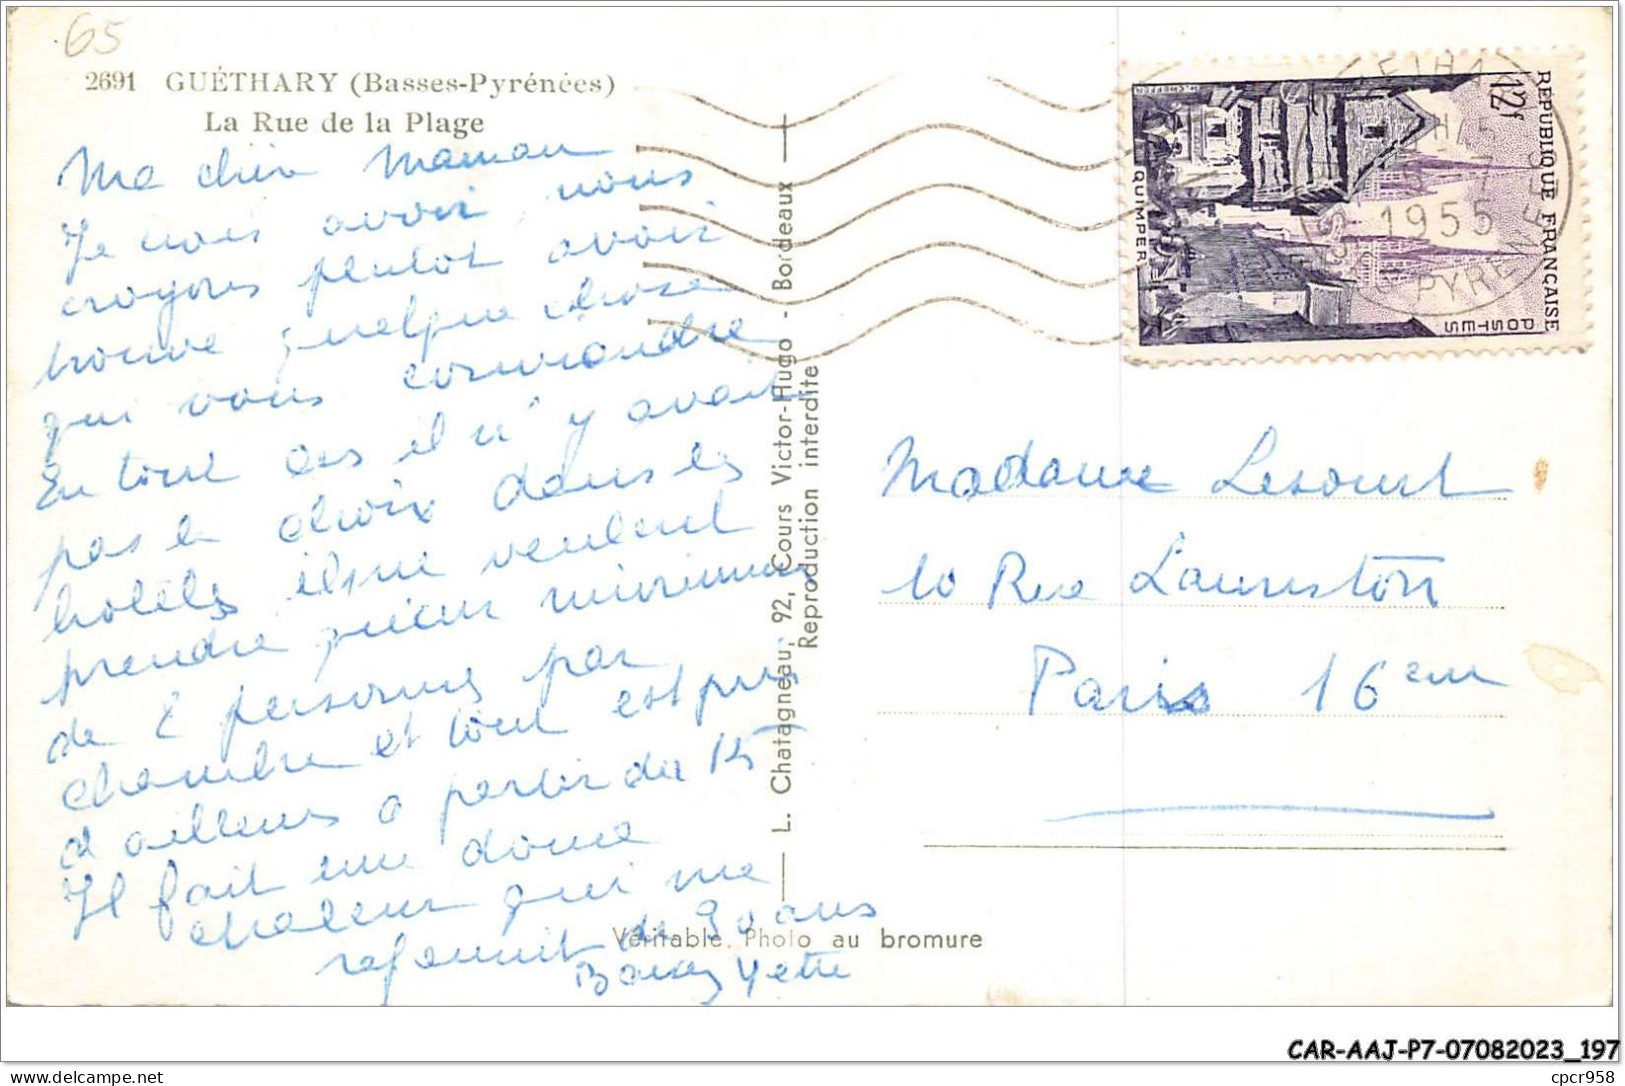 65
2691 GUÉTHARY (Basses-Pyrénées)
La Rue de la Plage
Ma chère Maman
Je crois avoir, nous
croyons plutôt avoir
trouvé quelque chose
qui vous conviendra
En tout cas il n'y avait
pas le choix dans les
hôtels ils ne veulent
prendre qu'un minimum
de 2 personnes par
chambre et tout est pris
d'ailleurs à partir du 15
Il fait une douce
chaleur qui me
rajeunit de 30 ans
Yette
L. Chatagneau, 92, Cours Victor-Hugo - Bordeaux
Reproduction interdite
Véritable Photo au bromure
RÉPUBLIQUE FRANÇAISE
POSTES
12f
QUIMPER
1955
PYRENEES
Madame Lesourt
10 Rue Lauriston
Paris 16em
CAR-AAJ-P7-07082023_197
delcampe.net
cpcr958